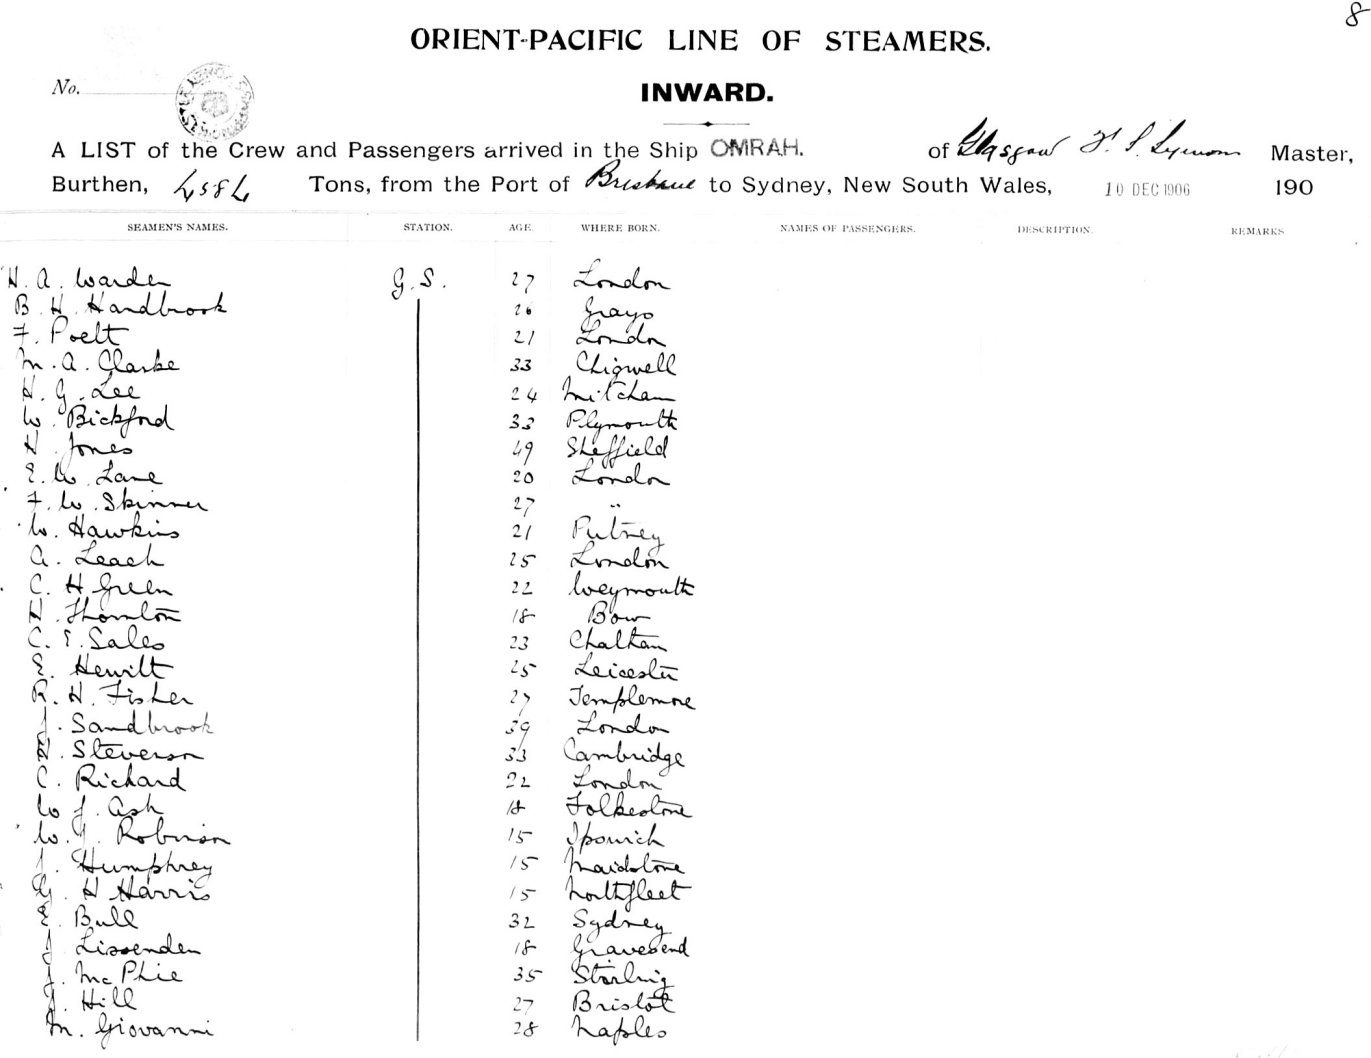 8
ORIENT-PACIFIC LINE OF STEAMERS.
No.
INWARD.
A LIST of the Crew and Passengers arrived in the Ship OMRAH. of Glasgow F. S. Symons Master,
Burthen, 4584 Tons, from the Port of Brisbane to Sydney, New South Wales, 10 DEC 1906 190
SEAMEN'S NAMES. STATION. AGE. WHERE BORN. NAMES OF PASSENGERS. DESCRIPTION. REMARKS
H. A. Warden G. S. 27 London
B. H. Handbrook 26 Grays
F. Poelt 21 London
M. A. Clarke 33 Chigwell
H. G. Lee 24 Mitcham
W. Bickford 33 Plymouth
H. Jones 49 Sheffield
E. W. Lane 20 London
F. W. Skinner 27 "
W. Hawkins 21 Putney
A. Leach 25 London
C. H. Green 22 Weymouth
H. Thornton 18 Bow
C. E. Sales 23 Chatham
E. Hewitt 25 Leicester
R. H. Fisher 27 Templemore
J. Sandbrook 39 London
H. Steverson 33 Cambridge
C. Richard 22 London
W. J. Ash 18 Folkestone
W. J. Robinson 15 Ipswich
J. Humphrey 15 Maidstone
G. H. Harris 15 Northfleet
E. Bull 32 Sydney
J. Lissenden 18 Gravesend
J. McPhie 35 Stirling
J. Hill 27 Bristol
M. Giovanni 28 Naples